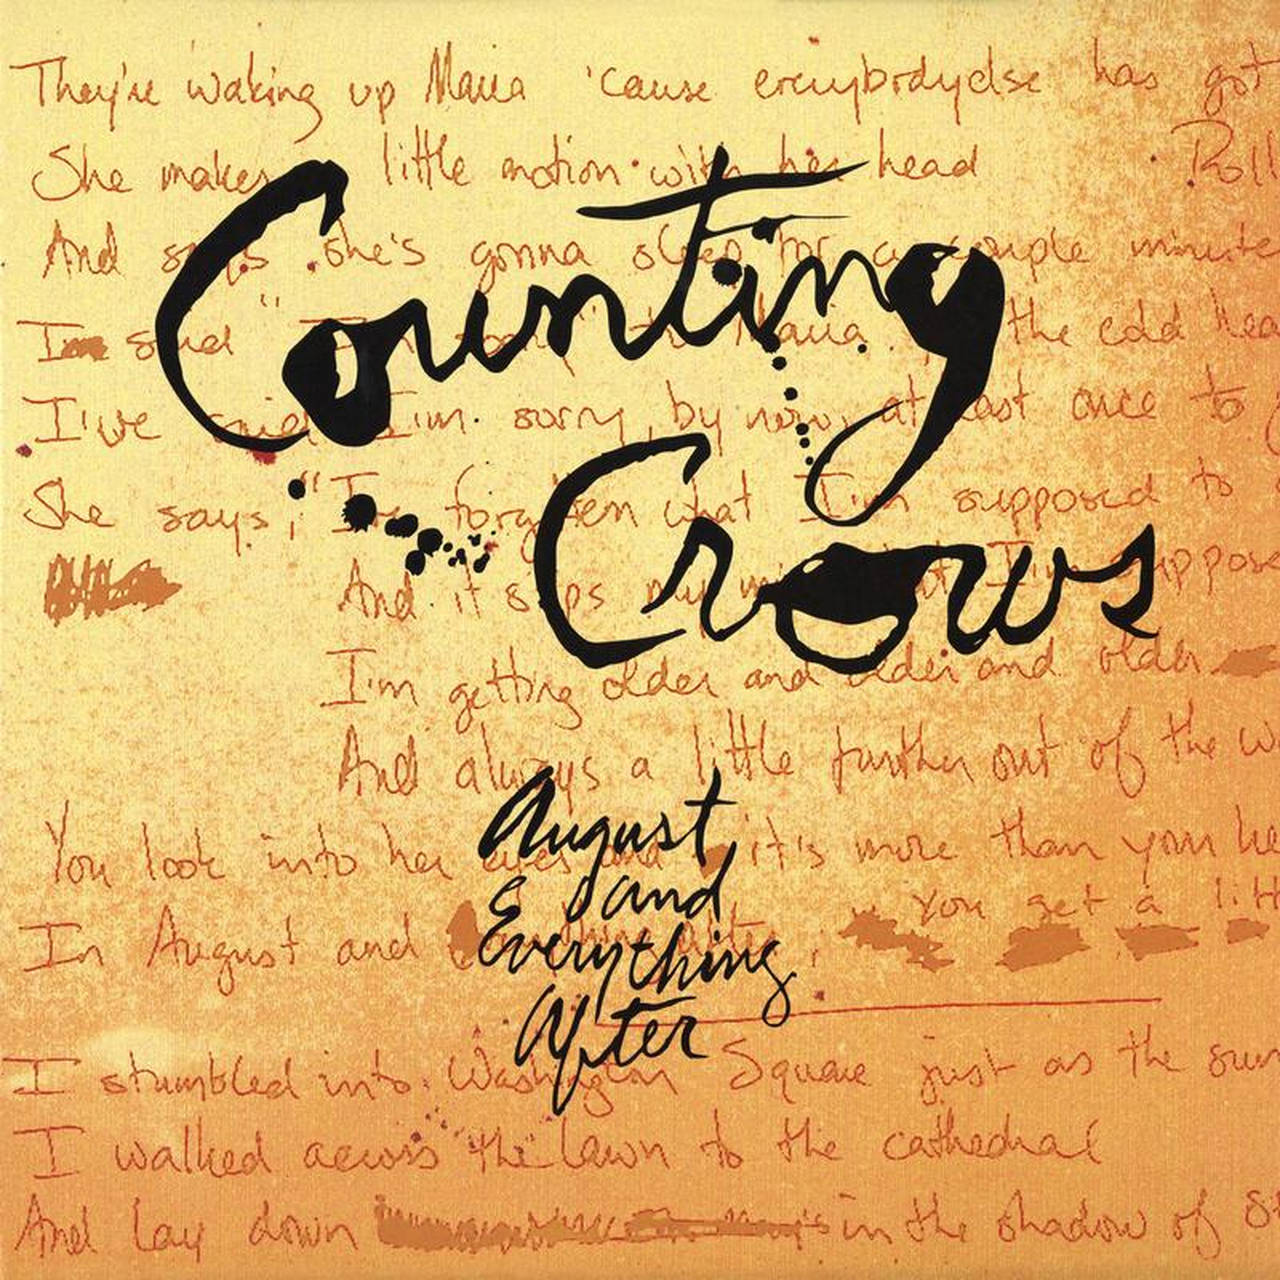 They're waking up Maria 'cause everybody else has got
She makes little motion with her head Roll
And says she's gonna sleep for a couple minute
Counting
I'm said "I'm sorry" to Maria. the cold hea
I've said I'm sorry, by now, at least once to
Crows
She says, "I've forgotten what I'm supposed to
And it slips my mind what I'm suppose
I'm getting older and older and older
And always a little further out of the w
August
You look into her eyes and it's more than your he
and
You get a litt
In August and everything after,
Everything
After
I stumbled into Washington Square just as the sun
I walked across the lawn to the cathedral
And lay down in the shadow of St